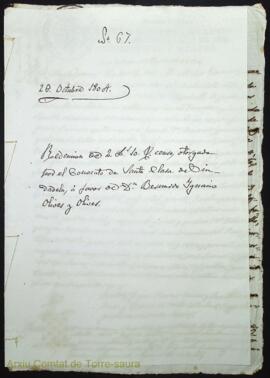 Nº 67.
20. Octubre 1804.
Redencion de 2 L. 10 S. censo, otorgada
por el Convento de Santa Clara de Ciu-
dadela, á favor de Dn. Bernardo Ignacio
Olives y Olives.
Arxiu Comtat de Torre-saura